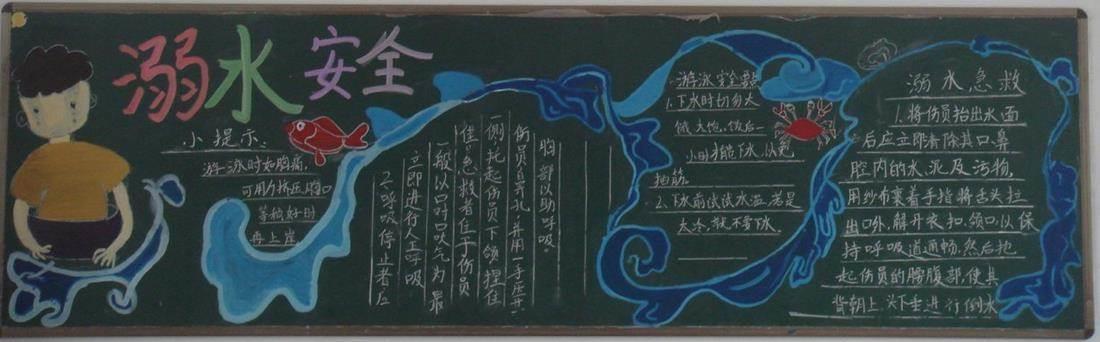 溺水安全
小提示:
游泳时如胸痛,
可用力挤压胸口
等稍好时
再上岸
2、呼吸停止者应
立即进行人工呼吸
一般以口对口吹气为最
佳。急救者位于伤员
一侧托起伤员下颌捏住
伤员鼻孔,并用一手压其
胸部以助呼吸。
游泳安全点
1.下水时切勿太
饿、太饱。饭后一
小时才能下水,以免
抽筋。
2、下水前试试水温,若是
太冷,就不要下水
溺水急救
1.将伤员抬出水面
后应立即清除其口、鼻
腔内的水、泥及污物,
用纱布裹着手指将舌头拉
出口外,解开衣扣、领口,以保
持呼吸道通畅,然后抱
起伤员的腰腹部,使其
背朝上、头下垂进行倒水